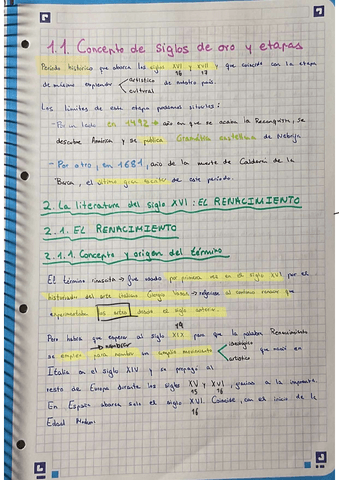 1.1. Concepto de siglos de oro y etapas
Periodo histórico que abarca los siglos XVI y XVII y que coincide con la etapa
16 17
de máximo esplendor artístico de nuestro país.
cultural
Los límites de esta etapa podemos situarlos:
- Por un lado en 1492 → año en que se acaba la Reconquista, se
descubre América y se publica Gramática castellana de Nebrija
- Por otro, en 1681, año de la muerte de Calderón de la
Barca, el último gran escritor de este periodo.
2. La literatura del siglo XVI: EL RENACIMIENTO
2.1. EL RENACIMIENTO
2.1.1. Concepto y origen del término
El término rinascita → fue usado por primera vez en el siglo XVI por el
historiador del arte italiano Giorgio Vasari → referirse al continuo renacer que
experimentaba las artes desde el siglo anterior.
19
Pero habrá que esperar al siglo XIX para que la palabra Renacimiento
se emplee para nombrar un amplio movimiento ideológico
artístico que nació en
Italia en el siglo XIV y se propagó al
resto de Europa durante los siglos XV y XVI, gracias a la imprenta.
15 16
En España abarca solo el siglo XVI. Coincide con el inicio de la
16
Edad Moderna.